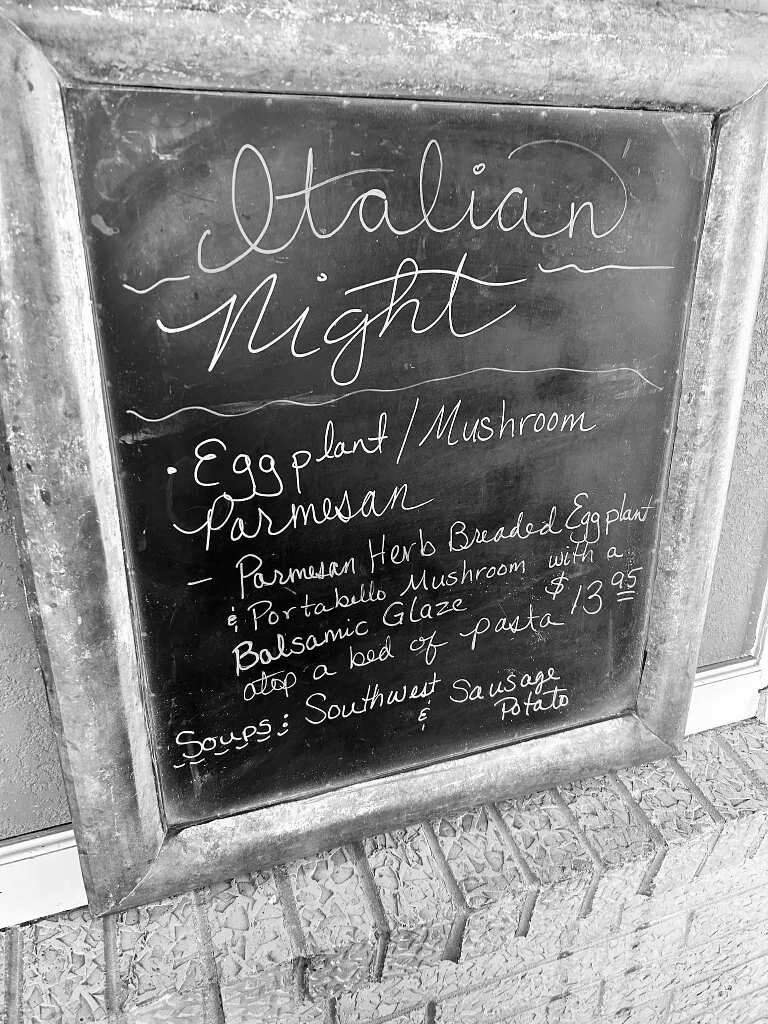 Italian
Night
• Eggplant/Mushroom
Parmesan
- Parmesan Herb Breaded Eggplant
& Portabello Mushroom with a
Balsamic Glaze
atop a bed of pasta $13.95
Soups: Southwest & Sausage
Potato